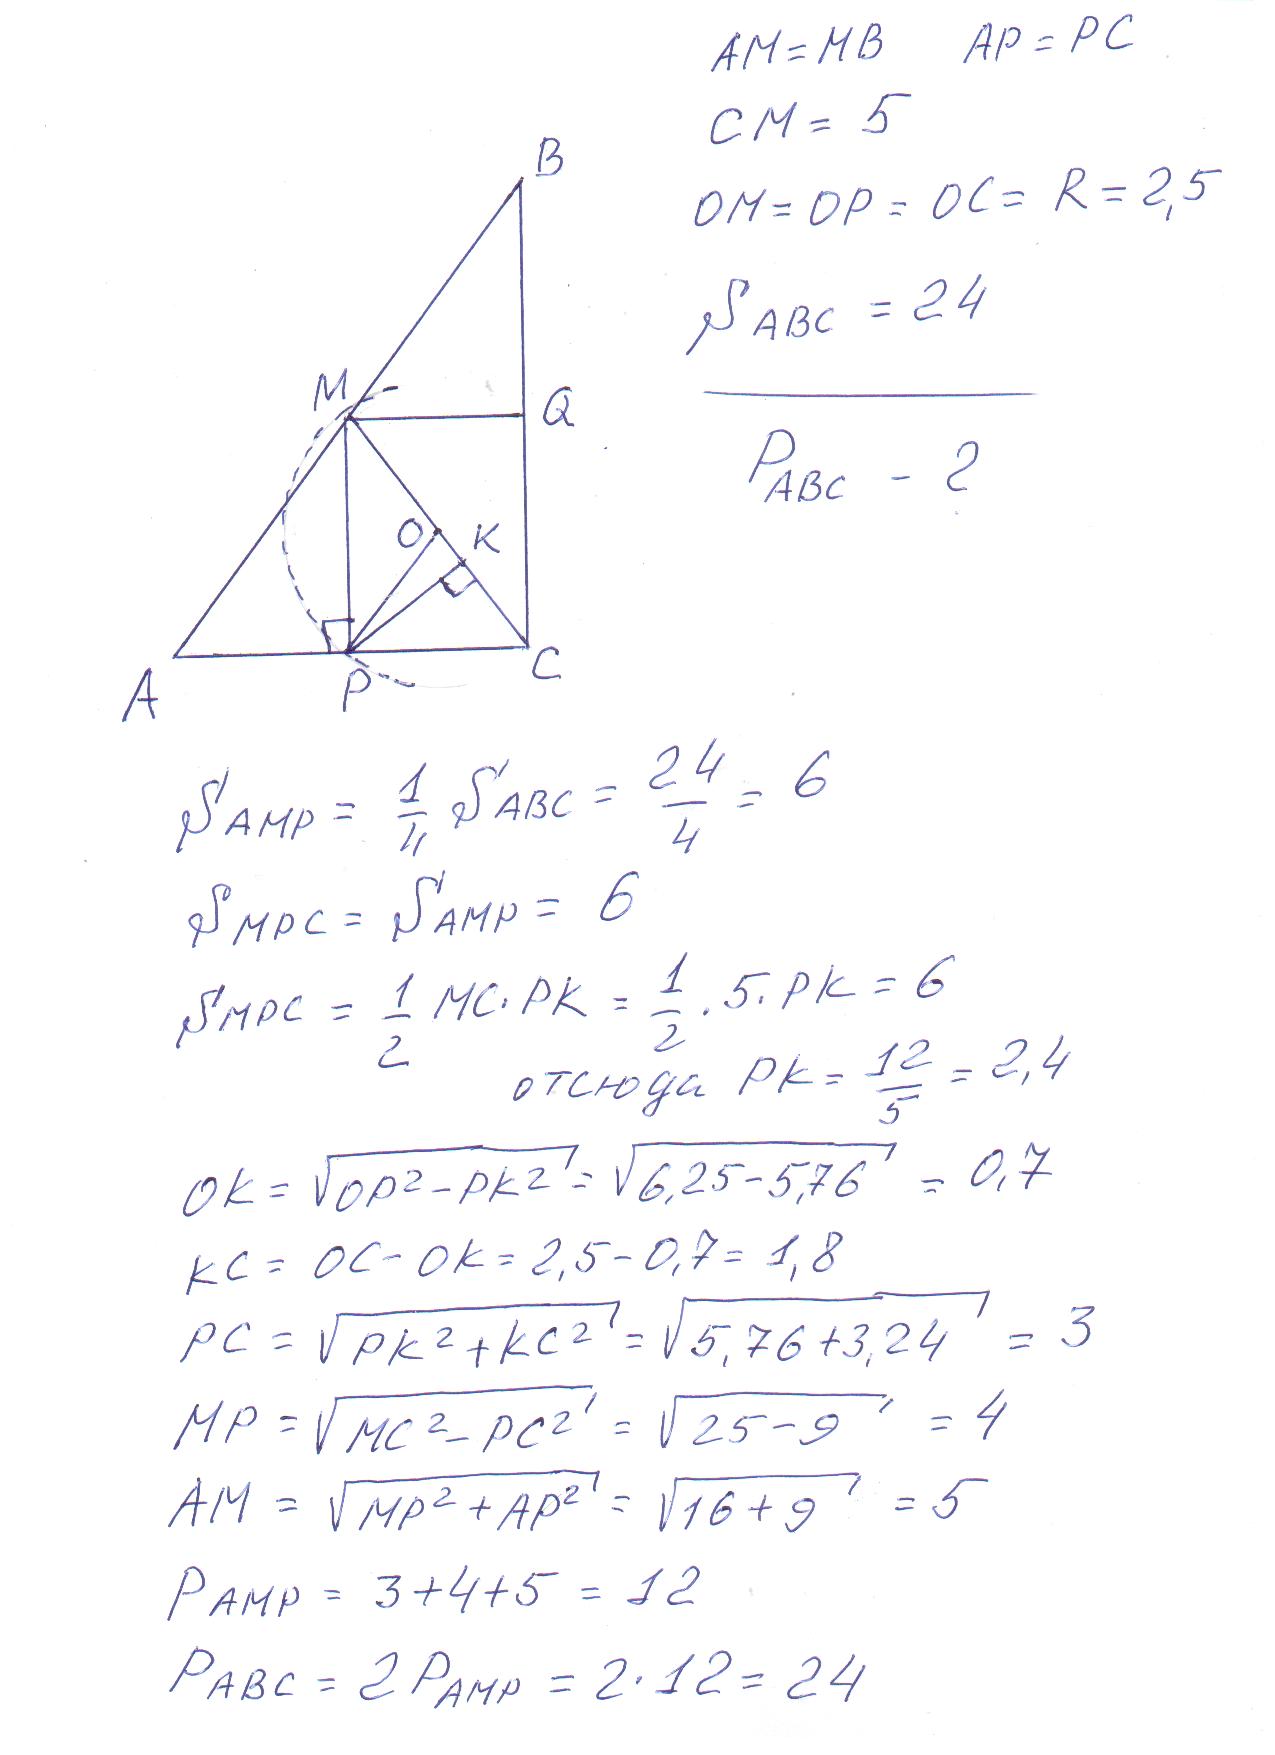 AM = MB   AP = PC
CM = 5
OM = OP = OC = R = 2,5
S ABC = 24
P ABC - ?
B
M
Q
O
K
A
P
C
S AMP = 1/4 S ABC = 24/4 = 6
S MPC = S AMP = 6
S MPC = 1/2 MC · PK = 1/2 · 5 · PK = 6
отсюда PK = 12/5 = 2,4
OK = √(OP² - PK²) = √(6,25 - 5,76) = 0,7
KC = OC - OK = 2,5 - 0,7 = 1,8
PC = √(PK² + KC²) = √(5,76 + 3,24) = 3
MP = √(MC² - PC²) = √(25 - 9) = 4
AM = √(MP² + AP²) = √(16 + 9) = 5
P AMP = 3 + 4 + 5 = 12
P ABC = 2 P AMP = 2 · 12 = 24